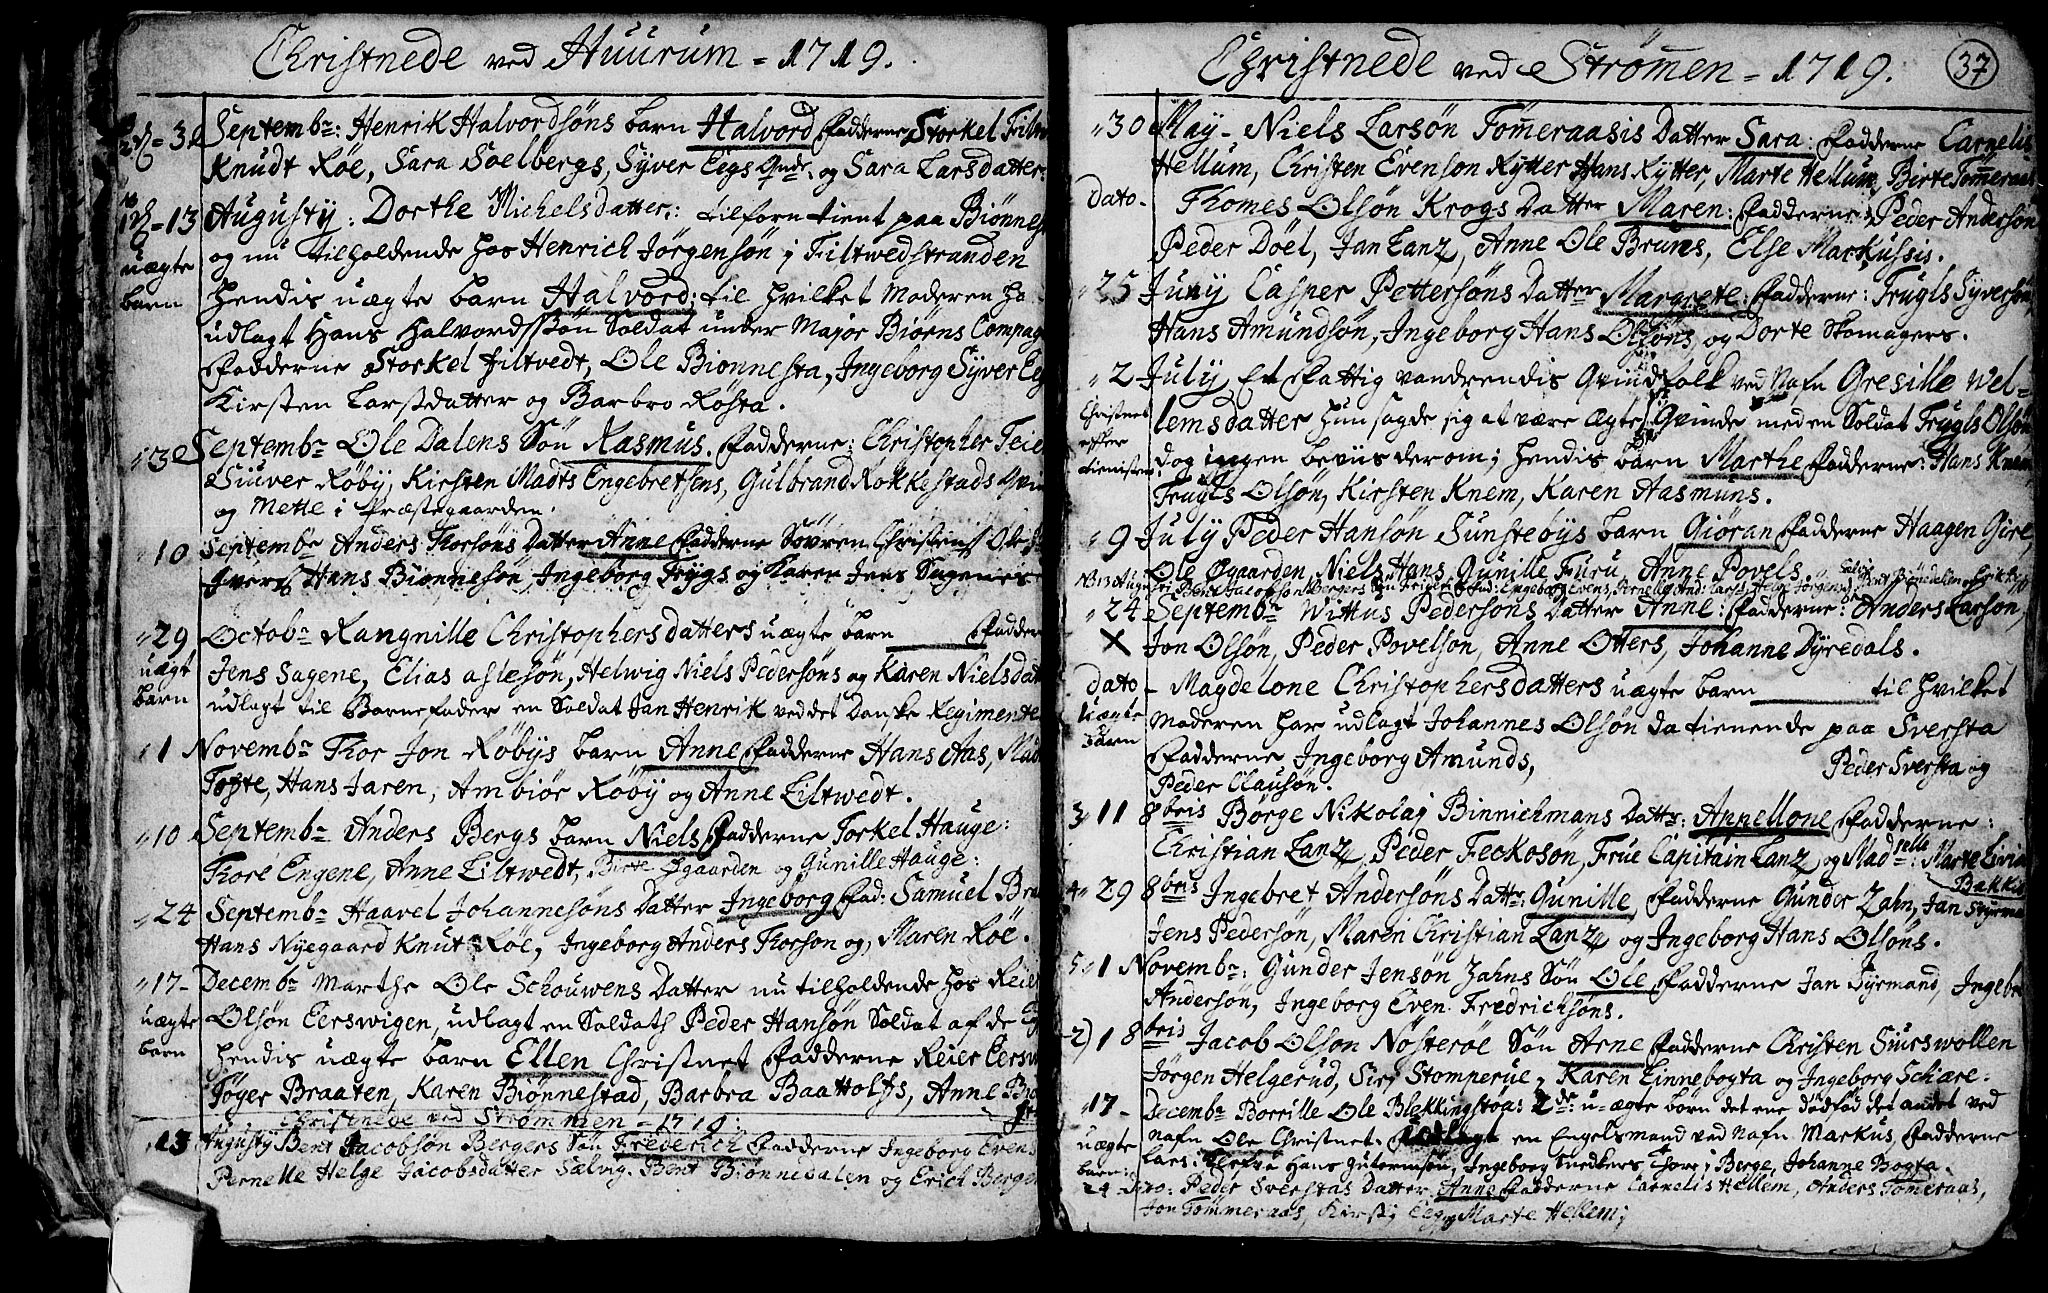 Christnede ved Huurum - 1719.
3 Septembr: Henrik Halvordsøns barn Halvord Fadderne Storkel
Knudt Røe, Sara Soelbergs, Syver Eegs Qvde. og Sara Larsdatter.
13 Augustij: Dorthe Michelsdatter: tilforn tient paa
uægte og nu tilholdende hos Henrich Jørgensøn i Filtwedstranden
barn hendis uægte barn Halvord; til hvilket Moderen
udlagt Hans Halvordssøn Soldat under Major Biørns
Fadderne Storkel Filtvedt, Ole Bionnesta, Ingeborg Syver
Kirsten Larsdatter og Barbro Røsta.
3 Septembr Ole Dalens Søn Rasmus. Fadderne: Christopher Teie
Siuver Røby, Kirsten Madts Engebretsens, Gulbrand Rokkestads
og Mette i Præstegaarden.
10 Septembr Anders Thorsøns Datter Anne Fadderne Søvren Christens
Hans Bionnesøn, Ingeborg Trygs og Karen Jens Sagenes
29 Octobr Rangnille Christophersdatters uægte barn ____
uægt Jens Sagene, Elias aslesøn, Helwig Niels Pedersøns og Karen
barn udlagt til Barnefader en Soldat Jan Henrik ved det Danske
1 Novembr Thor Jon Røbys barn Anne Fadderne Hans Aas,
Tofte, Hans Jaren, Ambiør Røby og Anne Liltwedt.
10 Septembr Anders Bergs barn Niels Fadderne Torkel Hauge:
Thore Engene, Anne Liltwedt, Birte Øgaarden og Gunille Hauge:
24 Septembr Haavel Johannesøns Datter Ingeborg Fad: Samuel
Hans Nyegaard Knut Røe, Ingeborg Anders Thorson og, Maren Røe.
17- Decembr Marthe Ole Schouwens Datter nu tilholdende hos
uægte Olsøn Eerswigen, udlagt en Soldath Peder Hansøn Soldat af de
barn hendis uægte barn Ellen Christnet Fadderne Reier
Tøger Braaten, Karen Biønnestad, Barbra Baattolfs, Anne
Christnede ved Strømmen - 1719:
13 Augustij Bent Jacobsøn Bergers Søn Frederich Fadderne Ingeborg
Pernelle Helge Jacobsdatter Sælvig. Bent Biønnedalen og Erich
Christnede ved Strømen - 1719. 37
30 May - Niels Larsøn Tømeraasis Datter Sara: Fadderne Carnelis
Hellum, Christen Evenson Rytter Hans Rytter, Marte Hellum, Birte
dato- Thomes Olsøn Krogs Datter Maren: Fadderne: Peder Andersøn
Peder Døel, Jan Lanz, Anne Ole Bruns, Else Markussis.
25 Juny Casper Pettersøns Datter Margrete: Fadderne: Trugls Syversøn
Hans Amundsøn, Ingeborg Hans Olsøns, og Dorte Skomagers.
2 July Et Fattig vandrendis Qvindfolk ved Nafn Gresille Wel-
Christnes lemsdatter hun sagde sig at være ægte Qvinde med en Soldat Trugls Olsøn
effter dog ingen beviis derom; hendis barn Marthe Fadderne: Hans Knem
tienisten Trugls Olsøn, Kirsten Knem, Karen Aasmuns.
9 July Peder Hansøn Sunstebys barn Giøran Fadderne Haagen Gire,
Ole Øgaarden, Niels Hans, Gunille Furu, Anne Povels
24 Septembr Wittus Pedersøns Datter Anne: Fadderne: Anders Larson,
X Jon Olsøn, Peder Povelson, Anne Otters, Johanne Dyredals.
dato - Magdelone Christophersdatters uægte barn ____ til hvilket
uægte Moderen har udlagt Johannes Olsøn da tienende paa Sversta
barn Fadderne Ingeborg Amunds, Peder Sversta og
Peder Clausøn.
3 11 8bris Børge Nikolaj Binnichmans Dattr: Appellone Fadderne:
Christian Lanz, Peder Feckosøn, Frue Capitain Lanz og Madselle: Marte
Bakke
4 29 8bris Ingebret Andersøns Dattr: Gunille Fadderne Gunder Zahn, Jan
Jens Pedersøn, Maren Christian Lanz og Ingeborg Hans Olsøns.
5 1 Novembr: Gunder Jensøn Zahns Søn Ole Fadderne Jan Dyrmand,
Andersøn, Ingeborg Even Fredrichsøns.
2) 1 8bris Jacob Olsøn Nøsterøe Søn Arne Fadderne Christen Suurswollen
Jørgen Helgerud, Siri Stomperue, Karen Linnebogta og Ingeborg Schiære-
17- Decembr Borrille Ole Blekkingstøa: 2de: u-ægte børn det ene dødfød det andet ved
uægte Nafn Ole Christnet. Udlagt en Engelsmand ved Nafn Markus Fadderne
barn: Lars Hans Gutormsøn, Ingeborg Snedkers Thore i Berge, Johanne Bogta.
24 Dito: Peder Sverstas Datter Anne Fadderne Carnelis Hellem, Anders Tømeraas,
Jon Tømmeraas, Kirsti Eeg, Marte Hellem;